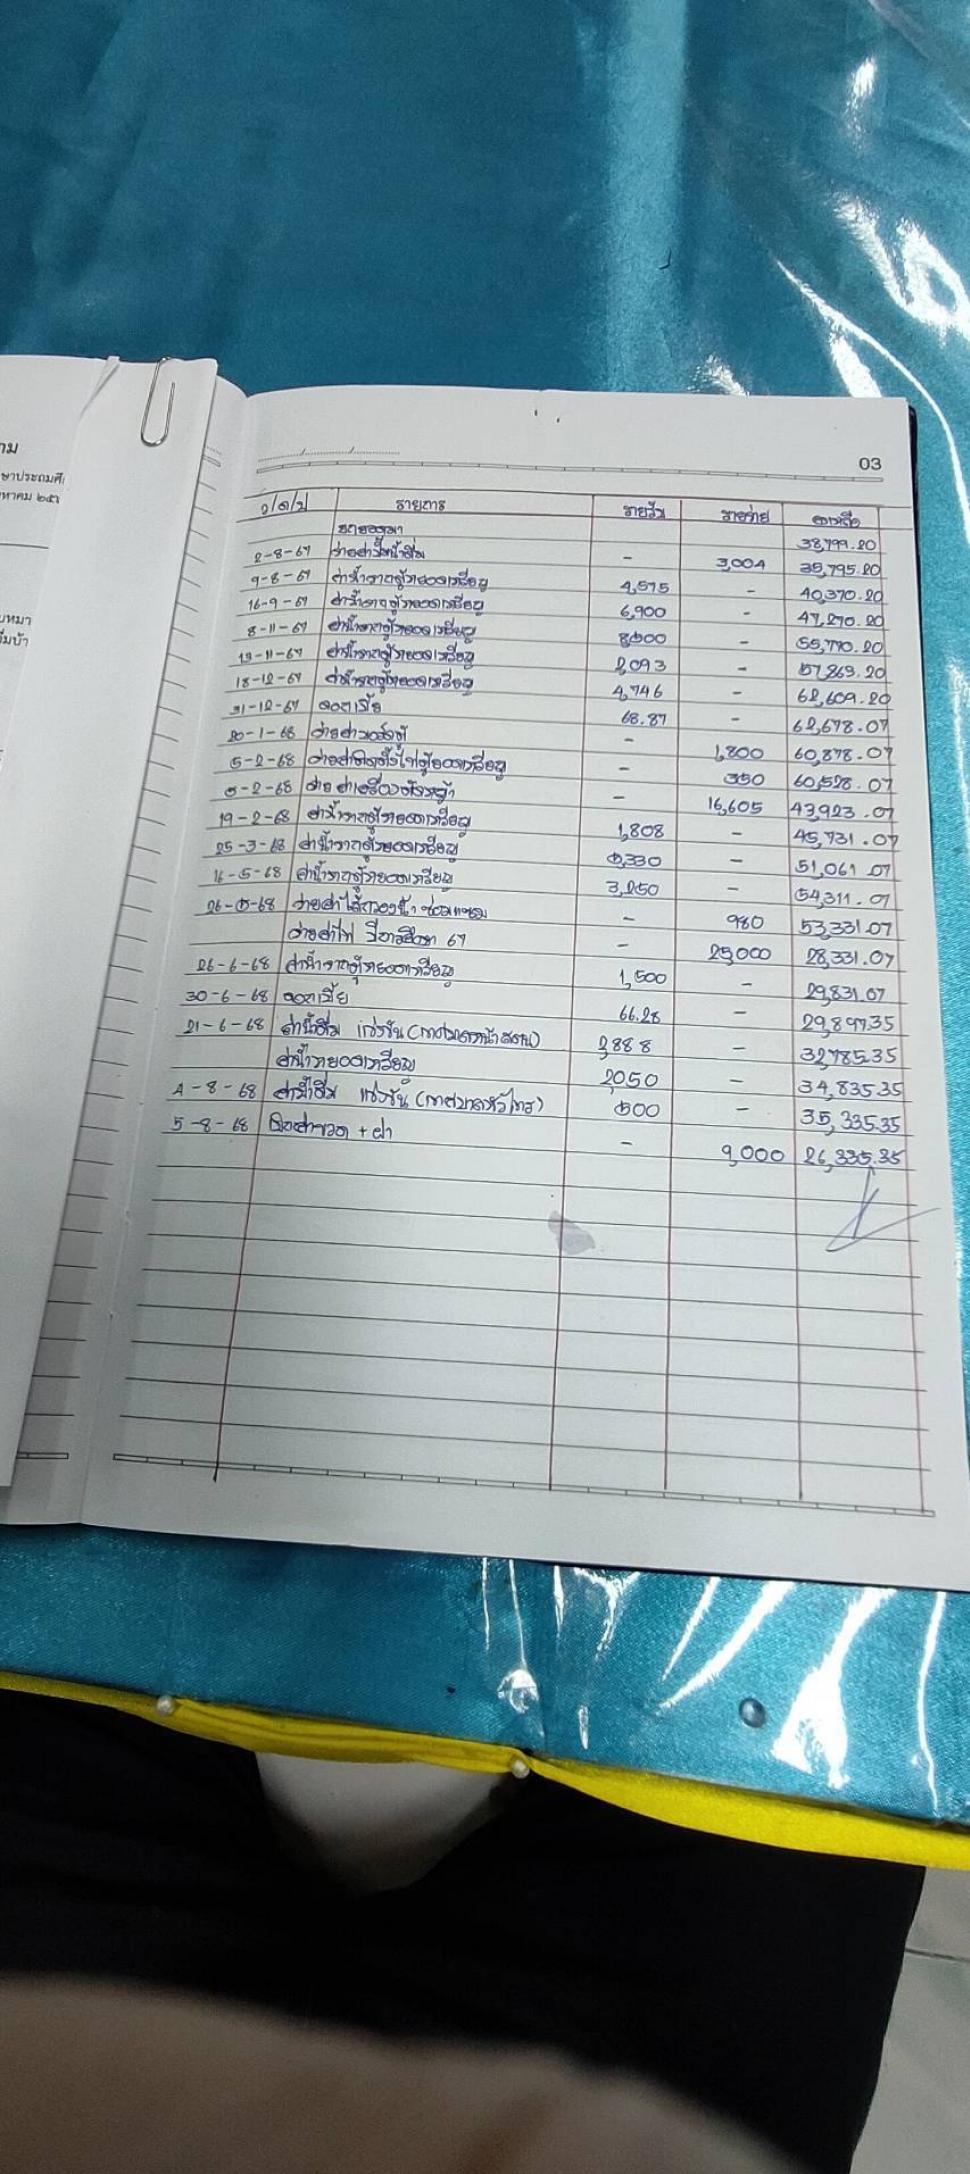 าม
ษาประถมศึ
หาคม ๒๕๖
บหมา
ื่มบ้า
03
ว/ด/ป รายการ รายรับ รายจ่าย คงเหลือ
ยกยอดมา 38,799.20
2-8-67 จ่ายค่าปั๊มน้ำดื่ม - 3,004 35,795.20
9-8-67 ค่าน้ำจากตู้หยอดเหรียญ 4,575 - 40,370.20
16-9-67 ค่าน้ำจากตู้หยอดเหรียญ 6,900 - 47,270.20
8-11-67 ค่าน้ำจากตู้หยอดเหรียญ 8,500 - 55,770.20
13-11-67 ค่าน้ำจากตู้หยอดเหรียญ 2,093 - 57,863.20
18-12-67 ค่าน้ำจากตู้หยอดเหรียญ 4,746 - 62,609.20
31-12-67 ดอกเบี้ย 68.87 - 62,678.07
20-1-68 จ่ายค่า - 1,800 60,878.07
5-2-68 จ่ายค่าติดตั้งไฟตู้หยอดเหรียญ - 350 60,528.07
5-2-68 จ่ายค่าเครื่องตัดหญ้า - 16,605 43,923.07
19-2-68 ค่าน้ำจากตู้หยอดเหรียญ 1,808 - 45,731.07
25-3-68 ค่าน้ำจากตู้หยอดเหรียญ 5,330 - 51,061.07
16-5-68 ค่าน้ำจากตู้หยอดเหรียญ 3,250 - 54,311.07
26-5-68 จ่ายค่าไส้กรองน้ำ ซ่อมแซม - 980 53,331.07
จ่ายค่าไฟ ปีการศึกษา 67 - 25,000 28,331.07
26-6-68 ค่าน้ำจากตู้หยอดเหรียญ 1,500 - 29,831.07
30-6-68 ดอกเบี้ย 66.28 - 29,897.35
21-6-68 ค่าน้ำดื่ม แข่งขัน 2,888 - 32,785.35
ค่าน้ำหยอดเหรียญ 2,050 - 34,835.35
4-8-68 ค่าน้ำดื่ม แข่งขัน 500 - 35,335.35
5-8-68 ค่าขวด + ฝา - 9,000 26,335.35